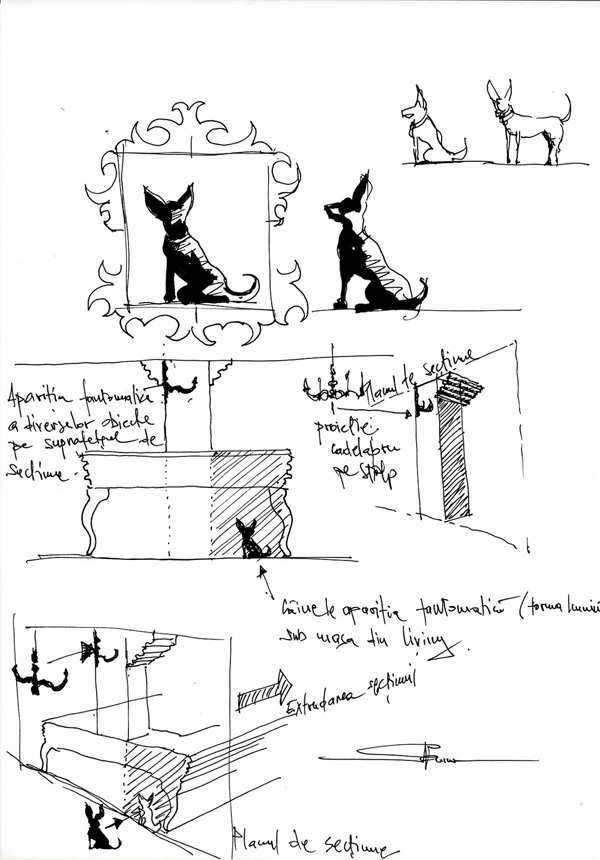 Apariția fantomatică
a diverselor obiecte
pe suprafețele de
secțiune.
Planul de secțiune
proiecție
cadelabru
pe stâlp
Câinele apariția fantomatică (forma
sub masa din living
Extrudarea secțiunii
Planul de secțiune